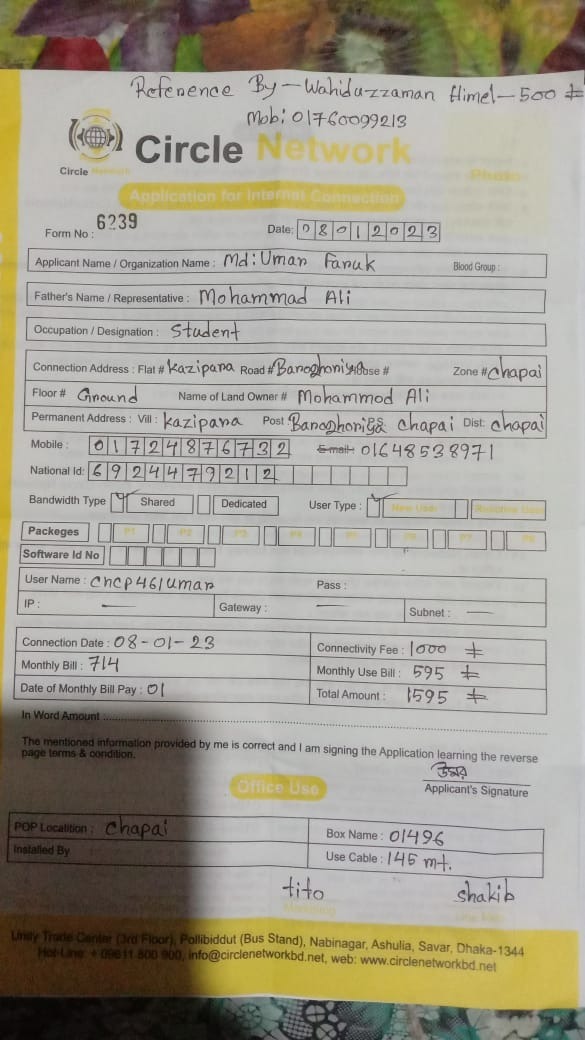 Reference By - Wahiduzzaman Himel - 500 ±
Mob: 01760099213
Circle Network
Circle Network
Photo
Application for Internet Connection
Form No : 6239 Date: 08012023
Applicant Name / Organization Name : Md: Umar Faruk Blood Group :
Father's Name / Representative : Mohammad Ali
Occupation / Designation : Student
Connection Address : Flat # Kazipara Road # Banoghoniya House # Zone # Chapai
Floor # Ground Name of Land Owner # Mohammod Ali
Permanent Address : Vill : Kazipara Post : Chapai Dist: Chapai
Mobile : 01724876732 E-mail: 01648538971
National Id: 6924479212
Bandwidth Type Shared Dedicated User Type : New User
Packeges P1 P2 P3 P4 P5 P6 P7 P8
Software Id No
User Name : cncp461umar Pass :
IP : — Gateway : — Subnet : —
Connection Date : 08-01-23 Connectivity Fee : 1000 ±
Monthly Bill : 714 Monthly Use Bill : 595 ±
Date of Monthly Bill Pay : 01 Total Amount : 1595 ±
In Word Amount
The mentioned information provided by me is correct and I am signing the Application learning the reverse
page terms & condition.
উমর
Applicant's Signature
Office Use
POP Localition : Chapai Box Name : 01496
Installed By Use Cable : 145 mt.
tito shakib
Unity Trade Center (3rd Floor), Pollibiddut (Bus Stand), Nabinagar, Ashulia, Savar, Dhaka-1344
Hot-Line: + 09611 800 900, info@circlenetworkbd.net, web: www.circlenetworkbd.net